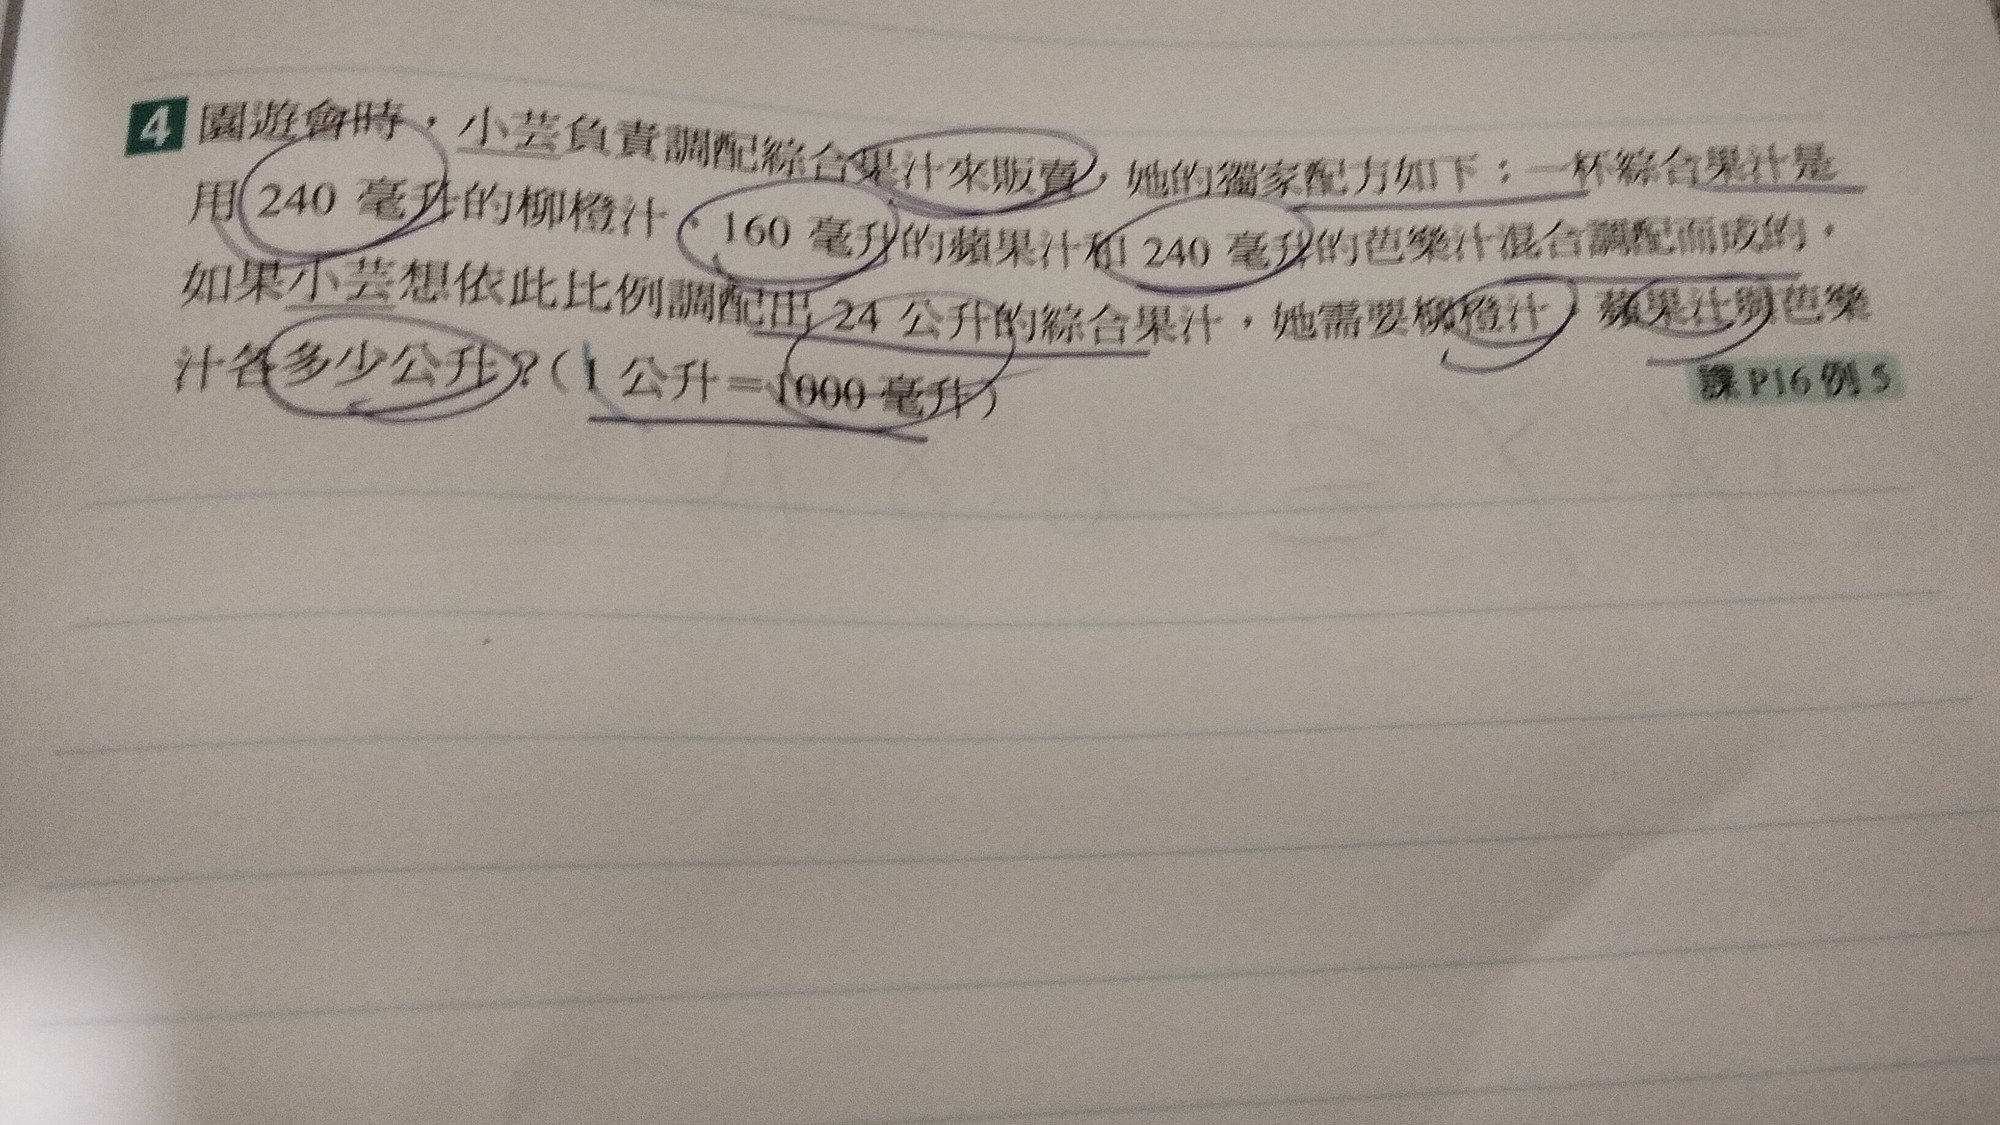 4 園遊會時，小芸負責調配綜合果汁來販賣，她的獨家配方如下：一杯綜合果汁是
用 240 毫升的柳橙汁、160 毫升的蘋果汁和 240 毫升的芭樂汁混合調配而成的，
如果小芸想依此比例調配出 24 公升的綜合果汁，她需要柳橙汁、蘋果汁與芭樂
汁各多少公升？（1 公升＝1000 毫升）
課 P16 例 5